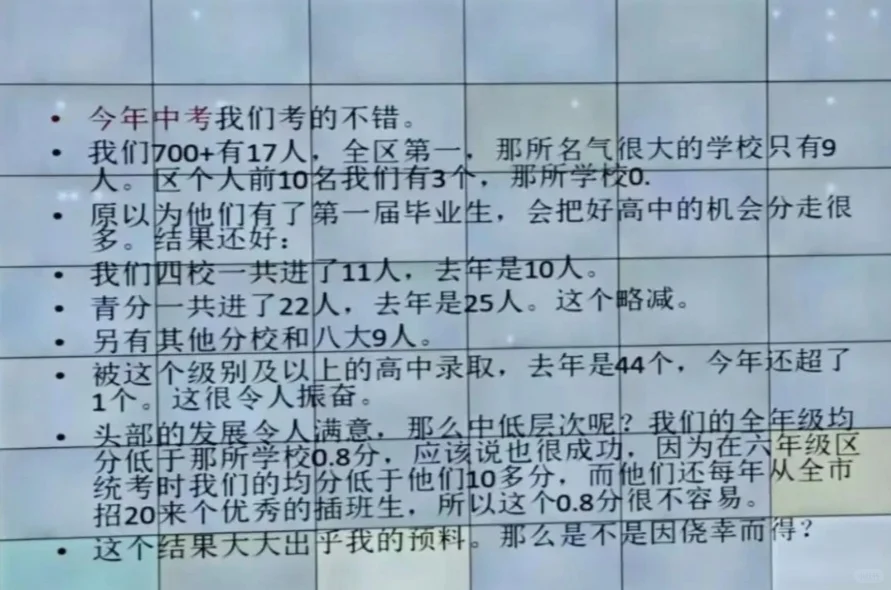 • 今年中考我们考的不错。
• 我们700+有17人，全区第一，那所名气很大的学校只有9
人。区个人前10名我们有3个，那所学校0.
• 原以为他们有了第一届毕业生，会把好高中的机会分走很
多。结果还好：
• 我们四校一共进了11人，去年是10人。
• 青分一共进了22人，去年是25人。这个略减。
• 另有其他分校和八大9人。
• 被这个级别及以上的高中录取，去年是44个，今年还超了
1个。这很令人振奋。
• 头部的发展令人满意，那么中低层次呢？我们的全年级均
分低于那所学校0.8分，应该说也很成功，因为在六年级区
统考时我们的均分低于他们10多分，而他们还每年从全市
招20来个优秀的插班生，所以这个0.8分很不容易。
• 这个结果大大出乎我的预料。那么是不是因侥幸而得？